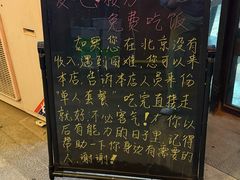 免费吃饭
如果您在北京没有
收入,遇到困难,您可以来
本店,告诉本店人员来份
"单人套餐"吃完直接走
就好,不必客气!你以
后有能力的日子里,记得
帮助一下你身边有需要的
人,谢谢!